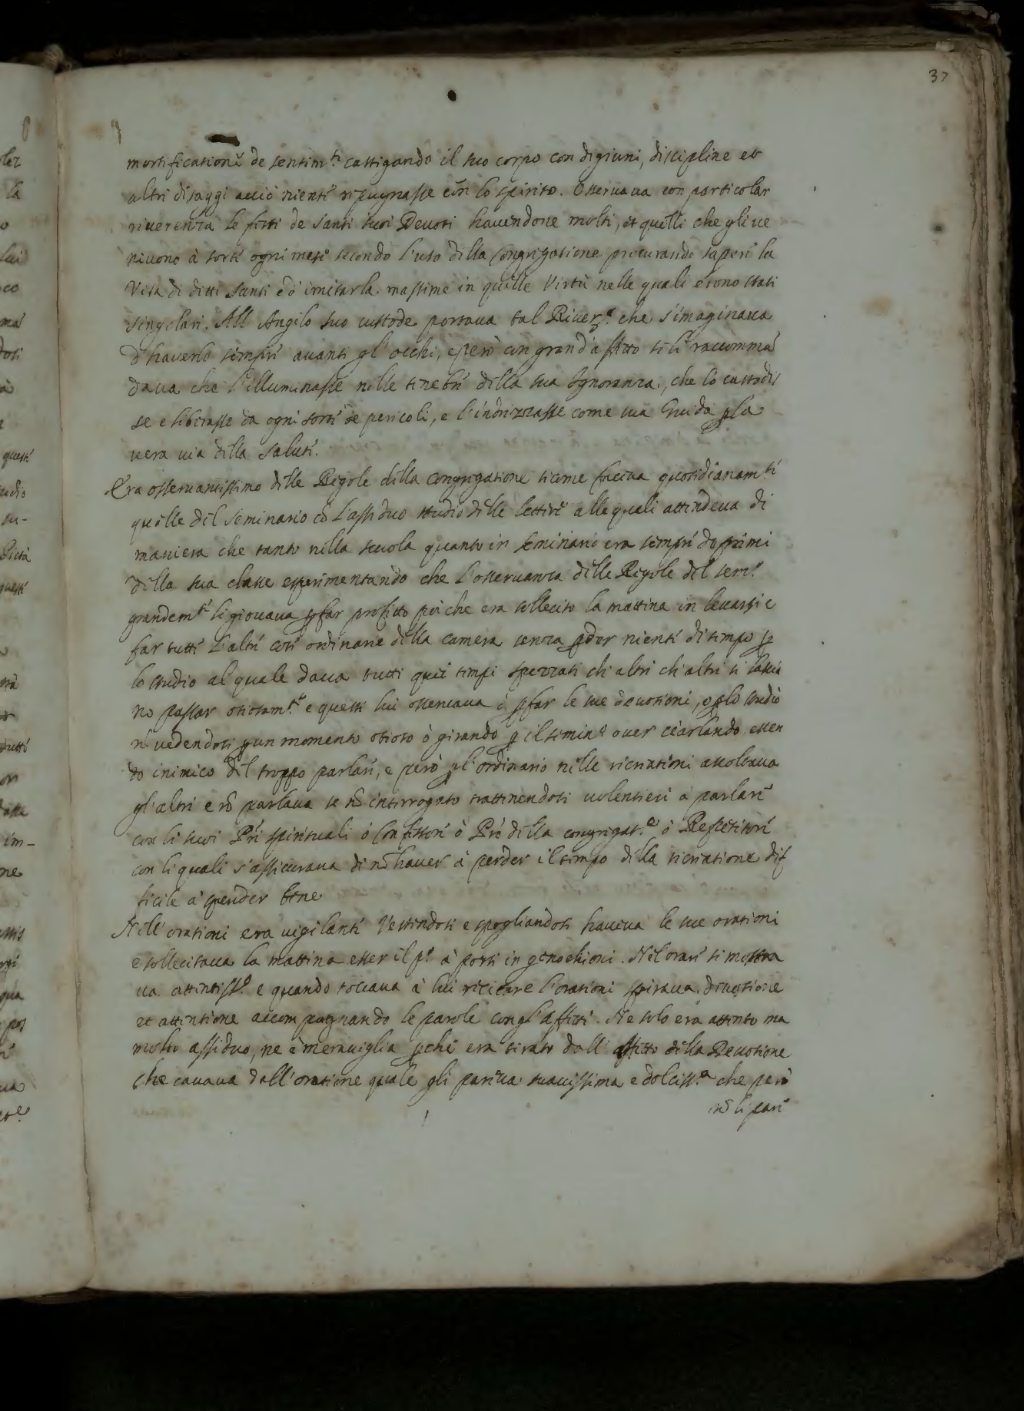 37
mortificatione de sentim.ti castigando il suo corpo con digiuni, discipline et
altri disaggi acciò niente repugnasse con lo spirito. Osservava con particolar
riverenza le feste de santi suoi Devoti havendone molti, et quelli che gli ve
nivono à sorte ogni mese secondo l'uso della Congregatione procurando sapere la
Vita di detti santi ed imitarla massime in quelle Virtù nelle quali erono stati
singolari. All Angelo suo custode portava tal River.za che s'imaginava
d'haverlo sempre avanti gl'occhi, e però con grand'affetto se li raccomma
dava che l'illuminasse nelle tenebre della sua Ignoranza, che lo custodis
se e liberasse da ogni sorte de pericoli, e l'indrizzasse come sua Guida p la
vera via della salute.
Era osservantissimo delle Regole della congregatione sicome faceva quotidianam.te
quelle del seminario ed l'assiduo studio delle lettere alle quali attendeva di
maniera che tanto nella scuola quanto in seminario era sempre de primi
della sua classe esperimentando che l'osservanza delle Regole del sem.o
grandem.te li giovava p far profitto poiche era sollecito la mattina in levarsi e
far tutte l'altre cose ordinarie della camera senza pder niente di tempo p
lo studio al quale dava tutti quei tempi spezzati ch'altri ch'altri si lascia
no passar otiosam.te e questi lui osservava ò p far le sue devotioni, o p lo studio
nè vedendosi p un momento otioso ò girando p il semin.o over ciarlando essen
do inimico del troppo parlare, e però p l'ordinario nelle ricreationi ascoltava
gl'altri e nō parlava se nō interrogato trattenendosi volentieri à parlare
con li suoi Pri spirituali ò Confessori ò Pri della congregat.ne ò Repetitori
con li quali s'assicurava di nō haver à perder il tempo della ricreatione dif
ficile à spender bene
Nell'orationi era vigilante Vestendosi e spogliandosi haveva le sue orationi
e sollecitava la mattina esser il p.o à porsi in genochioni. Nel orare si mostra
va attentiss.o e quando toccava à lui recitare l'orationi spirava devotione
et attentione accompagnando le parole con gl'affetti. Ne solo era attento ma
molto assiduo, ne è meraviglia pchè era tirato dall'affetto della Devotione
che cavava dall'oratione quale gli pareva suavissima e dolciss.a che però
nō li pare